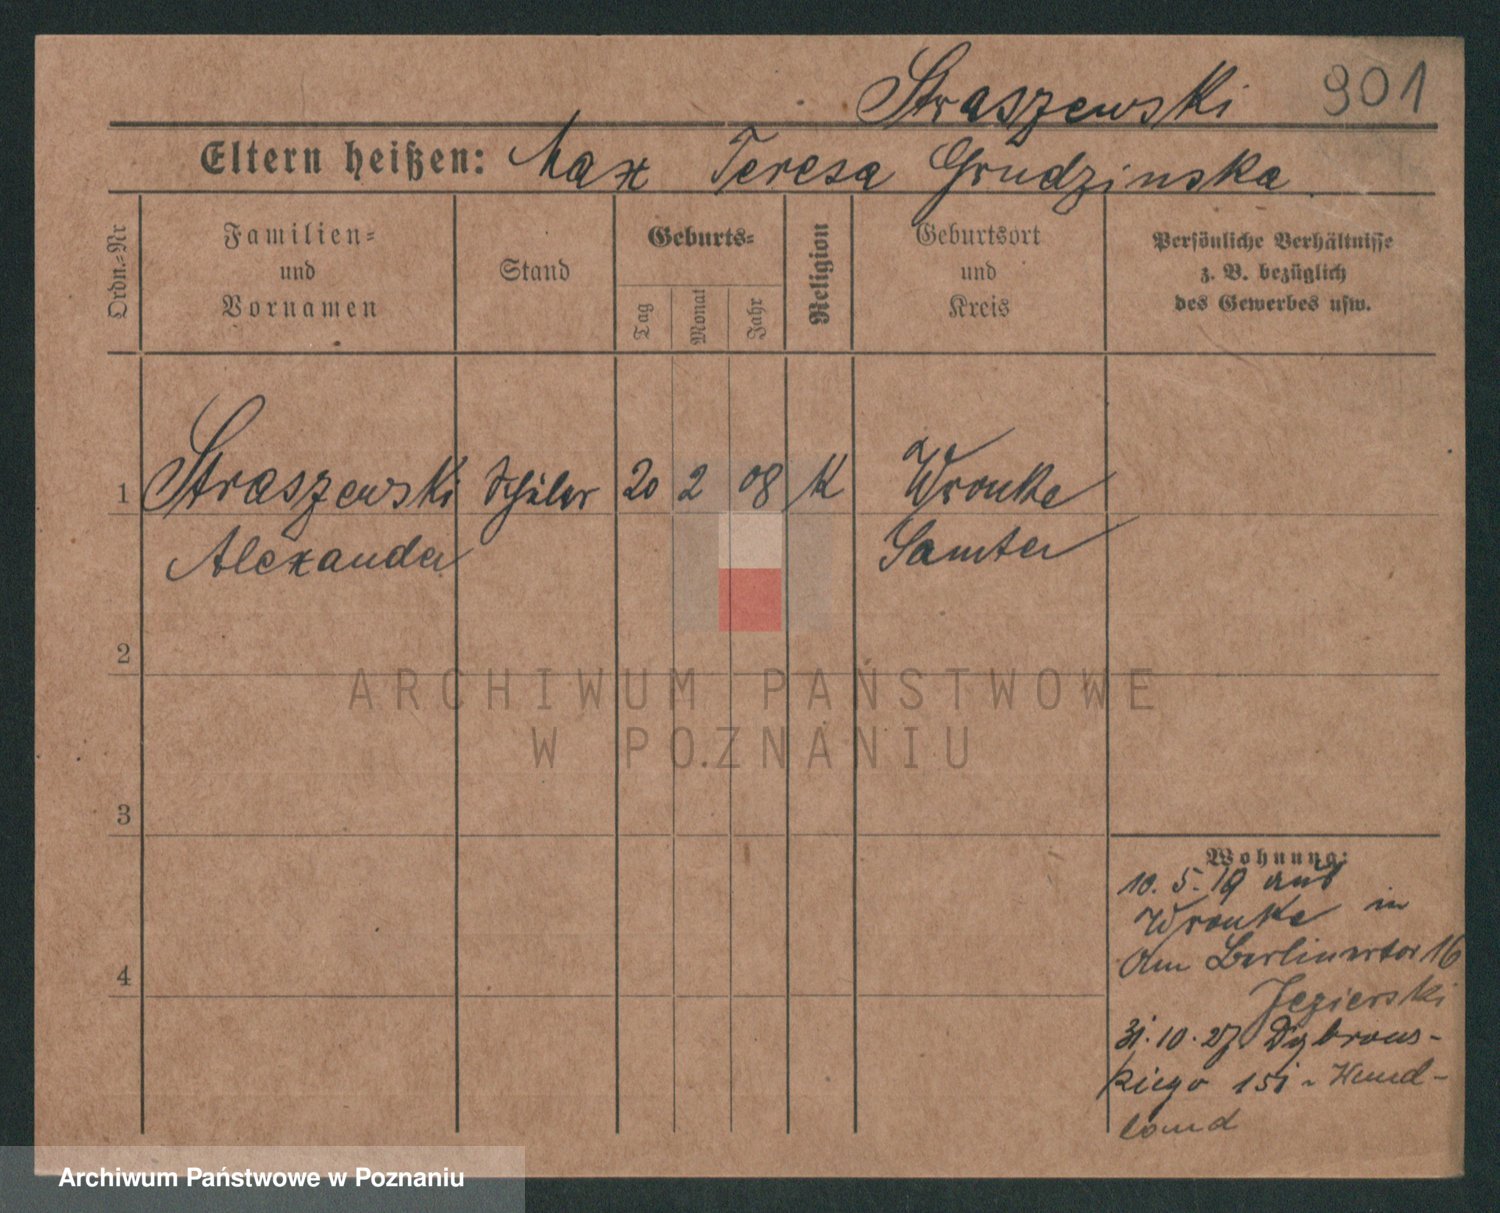 Straszewski 901
Eltern heißen: Max Teresa Grudzinska
Ordn.-Nr
Familien-
und
Vornamen
Stand
Geburts-
Tag
Monat
Jahr
Religion
Geburtsort
und
Kreis
Persönliche Verhältnisse
z. B. bezüglich
des Gewerbes usw.
1 Straszewski Schüler 20 2 08 K Wronke
Alexander Samter
2
ARCHIWUM PAŃSTWOWE
W POZNANIU
3
Wohnung:
10. 5. 19 aus
Wronke in
Am Berlinertor 16
Jezierski
4
31. 10. 27 Dąbrows-
kiego 151
Archiwum Państwowe w Poznaniu